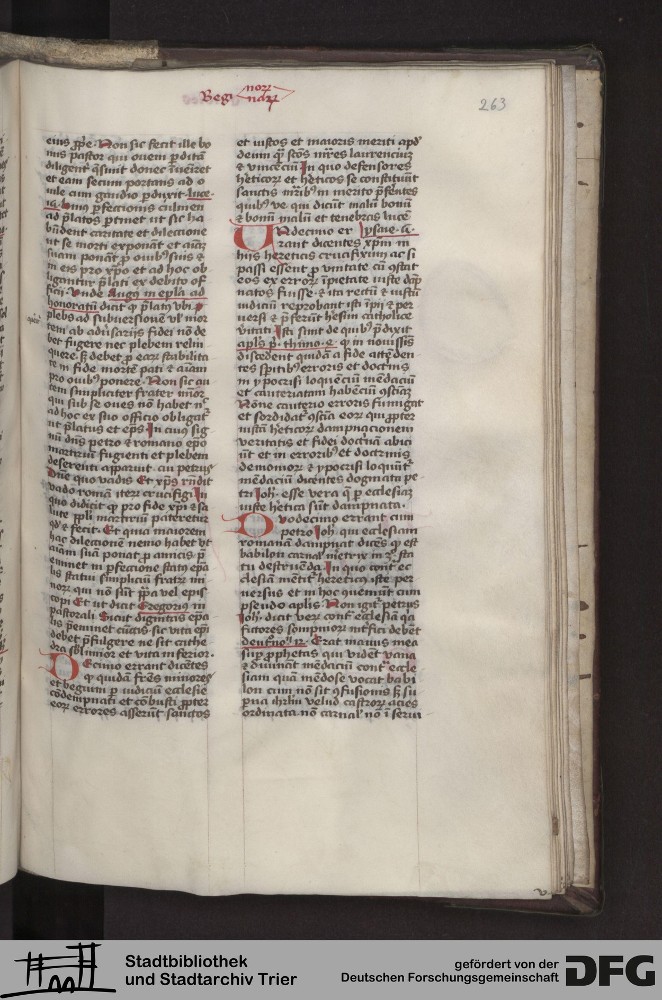 Begi norꝝ
narꝝ
263
eius ꝓpe · Non sic fecit ille bo
nus pastor qui ouem ꝑditā
diligent᷑ q̄siuit donec īueīret
et eam secum portans ad o
uile cum gaudio ꝑduxit luce ·
ꝑfectionis culmen
ad p̄latos ꝑtinet ut sic ha
bundent caritate et dileccione
ut se morti exponāt et aīaꝫ
suam ponāt ꝓ ouibꝰ suis ⁊
in eis pro xp̄o et ad hoc ob
ligantur p̄lati ex debito of
ficii · Vnde Augꝰ in epl̄a ad
honoratū dicit
plebs ad subuersionē ul̓ mor
tem ab adūsarijs fidei nō de
bet fugere nec plebem relin
quere · sꝫ debet ꝓ earꝫ stabilita
te in fide mortē pati ⁊ aīam
pro ouibꝰ ponere · Non sic au
tem simpliciter frater mīorꝰ
qui sub se oues nō habet nꝰ
ad hoc ex suo officio obligat᷑
ut p̄latus et ep̄s In cuiꝰ sig
nū dn̄s petro ⁊ romano ep̄o
martiriū fugienti et plebem
deserenti apparuit · cui petrus
Dn̄e quo vadis Et xp̄s rn̄dit
vado romā iterꝫ crucifigi In
quo didicit ꝙ pro fide xp̄i ⁊ sa
lute ppl̄i martiriū pateretur
qd̓ ⁊ fecit · Et quia maiorem
hac dileccionē nemo habet vt
aīam suā ponat ꝓ amicis p̄
eminet in ꝑfectione statꝰ ep̄a
lis statui simpliciū fratrū mi
norꝫ qui nō sūt
copi Et ut dicit Gregoriꝰ in
pastorali Sicut dignitas ep̄a
lis p̄eminet cūctis sic vita ep̄i
debet p̄fulgere ne sit cathe
dra sublimior et vita inferior ·
Decimo errant dicētes
ꝙ quidā fr̄es minores
et beguini ꝑ iudiciū ecclesie
cōdempnati et cōbusti ꝓpter
eorꝫ errores asserūt sanctos
et iustos et maioris meriti apd̓
deum qͣꝫ sc̄os mr̄es laurenciuꝫ
⁊ vinceciū In quo defensores
heticorꝫ et heticos se constituūt
sanctis mr̄ibꝰ in merito p̄ferētes
quibꝰ ve qui dicūt malū bonū
⁊ bonū malū et tenebras lucē
Undecimo er ysaie · 5 ·
rant dicentes xp̄m in
hijs hereticis crucifixum ac si
passi essent ꝓ vnitate cū cōstat
eos ex errorꝫ īpietate iuste dāp
natos fuisse · ⁊ ita rectū ⁊ iustū
iudiciū reprobant isti īpij ⁊ per
uersi ⁊ p̄ferūt hesim catholice
vitati Isti sunt de quibꝰ p̄dixit
apl̄s p · thimo · 4 · ꝙ in nouissīs
discedent quidā a fide attēden
tes sp̄ritibꝰ erroris et doctrinis
in ypocrisi loquenciū mēdaciū
et cauteriatam habenciū cōsciāꝫ
Nōne cauterio erroris fumigat᷑
et sordidat᷑ cōsciā eorꝫ qui ꝓpter
iustā heticorꝫ dampnacionem
veritatis et fidei doctinā abici
ūt et in erroribꝰ et doctrinis
demoniorꝫ ⁊ ypocrisi loquūt᷑
mēdaciū dicentes dogmata pe
tri Joh · esse vera q̄ ꝑ ecclesiaꝫ
iuste hetica sūt dampnata ·
Duodecimo errant cum
petro Joh · qui ecclesiam
romanā dampnat dicēs ꝙ est
babilon carnal̓ metrix in
tu destruēda · In quo cont᷑ ec
clesiam metit᷑ hereticꝰ iste per
uersus et in hoc cōuenūt cum
pseudo apl̄is Non igit᷑ petrus
Joh · dicat verꝫ cont᷑ ecclesiā qͣ
fictores sompniorꝫ int̓fici debēt
deut̓no · 12 · Erat manus mea
suꝑ ꝓphetas qui vidēt vana
⁊ diuināt mēdaciū contͣ eccle
siam quā mēdose vocat babi
lon cum nō sit cōfusionis sꝫ su
ꝑna ihrl̄m velud castrorꝫ acies
ordinata · nō carnal̓ nō ī serui
Stadtbibliothek
und Stadtarchiv Trier
gefördert von der
Deutschen Forschungsgemeinschaft
DFG